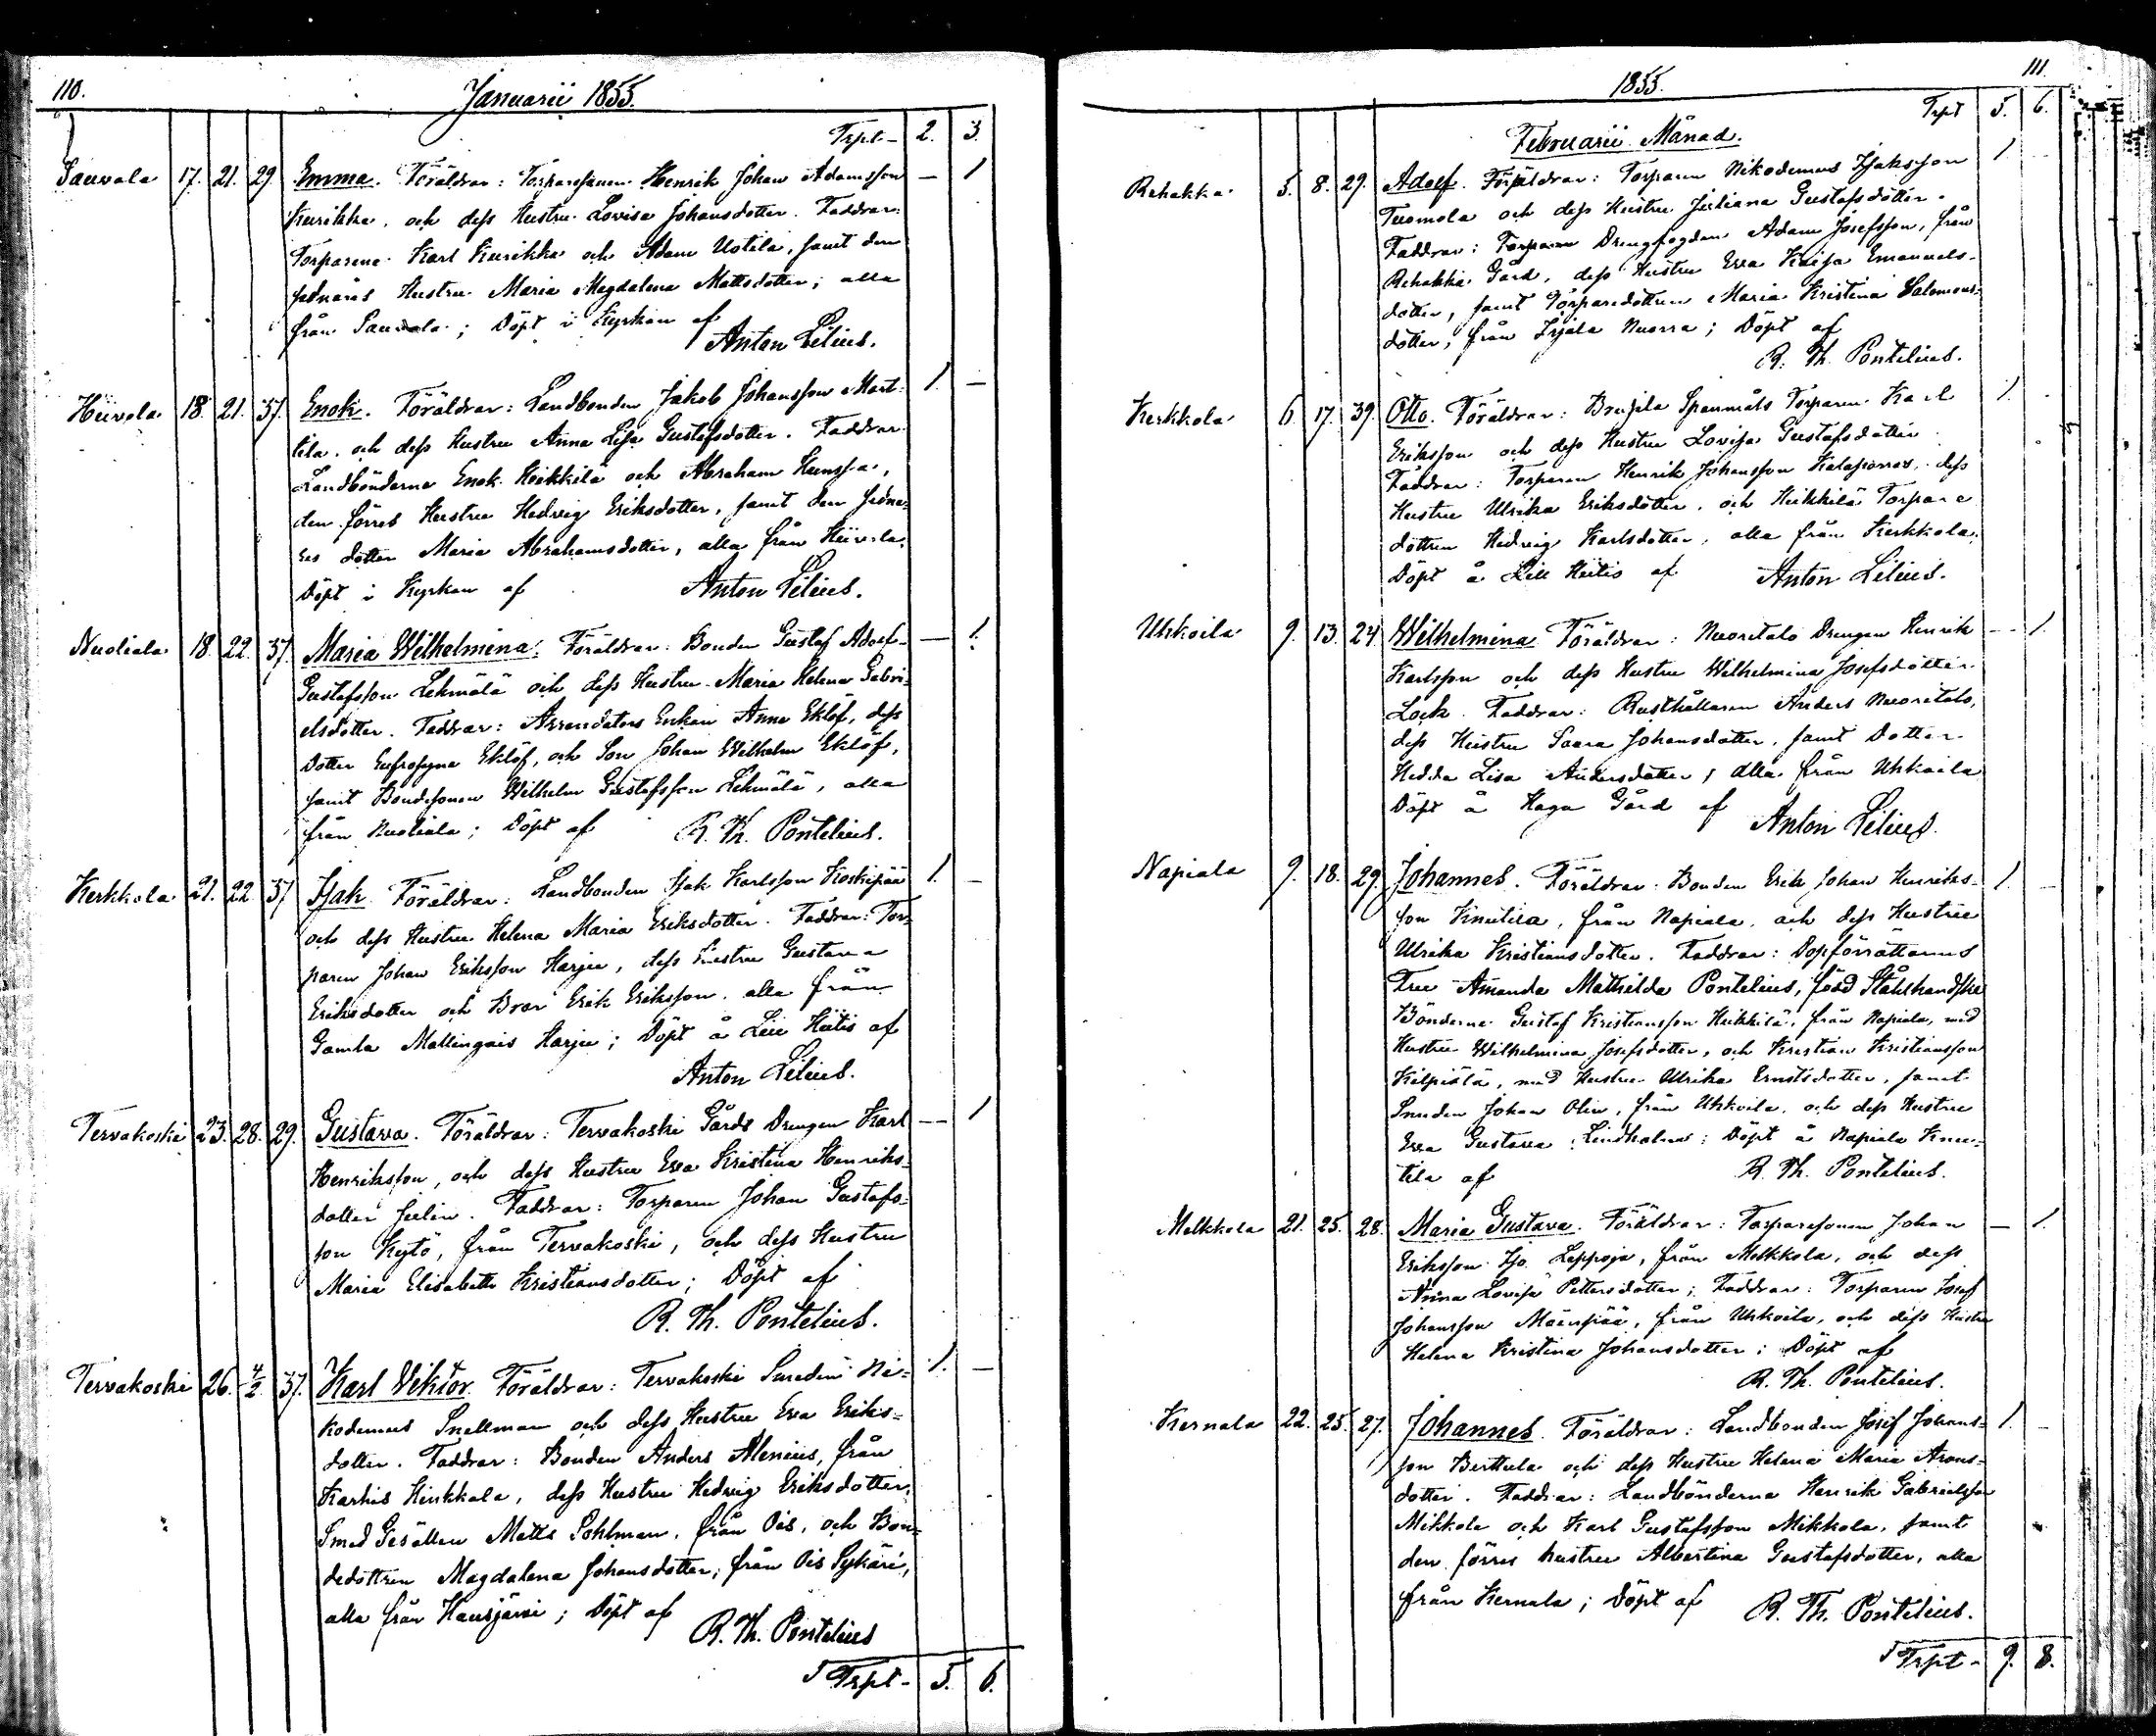 110.
Januarii 1855.
Trpt - 2. 3.
Sauvala 17. 21. 29. Emma. Föräldrar: Torparesonen Henrik Johan Adamsson — 1
Kurikka, och dess Hustru Lovisa Johansdotter. Faddrar:
Torparene Karl Kurikka och Adam Uotila, samt den
sednares Hustru Maria Magdalena Mattsdotter; alla
från Sauvala; Döpt i Kyrkan af
Anton Lilius.
Hiivola 18. 21. 37. Enok. Föräldrar: Landbonden Jakob Johansson Mart- 1. —
tila, och dess Hustru Anna Lisa Gustafsdotter. Faddrar
Landbönderna Enok Heikkilä och Abraham
den förres Hustru Hedvig Eriksdotter, samt den sedna-
res dotter Maria Abrahamsdotter, alla från Hiivola.
Döpt i Kyrkan af Anton Lilius.
Nuoliala 18 22. 37. Maria Wilhelmina. Föräldrar: Bonden Gustaf Adolf — 1.
Gustafsson Lehmälä och dess Hustru Maria Helena Gabri-
elsdotter. Faddrar: Arrendators Enkan Anna Eklöf, dess
Dotter Eufrosyna Eklöf, och Son Johan Wilhelm Eklöf,
samt Bondesonen Wilhelm Gustafsson Lehmälä, alla
från Nuoliala; Döpt af R. Th. Pontelius.
Kerkkola 21. 22. 37 Isak. Föräldrar: Landbonden Isak Karlsson Koskipää 1. —
och dess Hustru Helena Maria Eriksdotter. Faddrar: Tor-
paren Johan Eriksson Harju, dess Hustru Gustava
Eriksdotter och Bror Erik Eriksson, alla från
Gamla Mallingais Harju; Döpt å Lill Hiitis af
Anton Lilius.
Tervakoski 23. 28. 29. Gustava. Föräldrar: Tervakoski Gårds Drengen Karl — 1
Henriksson, och dess Hustru Eva Kristina Henriks-
dotter Julin. Faddrar: Torparen Johan Gustafs-
son Kytö, från Tervakoski, och dess Hustru
Maria Elisabeth Kristiansdotter; Döpt af
R. Th. Pontelius.
Tervakoski 26. 4/2 37. Karl Viktor. Föräldrar: Tervakoski Smeden Ni- 1. —
kodemus Snellman och dess Hustru Eva Eriks-
dotter. Faddrar: Bonden Anders Alenius, från
Karhis Hinkkala, dess Hustru Hedvig Eriksdotter,
Smed Gesällen Matts Sohlman, från Ois, och Bon-
dedottren Magdalena Johansdotter, från Ois Sykäri,
alla från Hausjärvi; Döpt af
R. Th. Pontelius
Trpt - 5. 6.
111.
1855.
Trpt 5. 6.
Februarii Månad.
Rehakka 5. 8. 29. Adolf. Föräldrar: Torparen Nikodemus Isaksson 1
Tuomola och dess Hustru Juliana Gustafsdotter.
Faddrar: Torparen Drengfogden Adam Josefsson, från
Rehakka Gård, dess Hustru Eva Kaisa Emanuels-
dotter, samt Torparedottren Maria Kristina Salomons-
dotter, från Irjala Nuorra; Döpt af
R. Th. Pontelius.
Kerkkola 6. 17. 39. Otto. Föräldrar: Spanmåls Torparen Karl 1.
Eriksson och dess Hustru Lovisa Gustafsdotter
Faddrar: Torparen Henrik Johansson dess
Hustru Ulrika Eriksdotter, och Heikkilä Torpare
dottren Hedvig Karlsdotter, alla från Kerkkola.
Döpt å Lill Hiitis af Anton Lilius.
Uhkoila 9. 13. 24. Wilhelmina Föräldrar: Nuoritalo Drengen Henrik — 1.
Karlsson och dess Hustru Wilhelmina Josefsdotter
Lock. Faddrar: Rusthållaren Anders Nuoritalo,
dess Hustru Saara Johansdotter, samt Dotter
Hedda Lisa Andersdotter, alla från Uhkoila
Döpt å Haga Gård af
Anton Lilius.
Napiala 9. 18. 29. Johannes. Föräldrar: Bonden Erik Johan Henriks- 1.
son Knutila, från Napiala, och dess Hustru
Ulrika Kristiansdotter. Faddrar: Dopförrättarens
Fru Amanda Mathilda Pontelius, född Stålhandske
Bönderne Gustaf Kristiansson Heikkilä, från Napiala, med
Hustru Wilhelmina Josefsdotter, och Kristian Kristiansson
Kilpiälä, med Hustru Ulrika Ernstsdotter, samt
Smeden Johan Olin, från Uhkoila, och dess Hustru
Eva Gustava Lindholm; Döpt å Napiala Knu-
tila af R. Th. Pontelius.
Melkkola 21. 25. 28. Maria Gustava. Föräldrar: Torparesonen Johan — 1.
Eriksson Iso Leppoja, från Melkkola, och dess
Anna Lovisa Pettersdotter; Faddrar: Torparen Josef
Johansson Mäenpää, från Uhkoila, och dess Hustru
Helena Kristina Johansdotter; Döpt af
R. Th. Pontelius.
Kernala 22. 25. 27. Johannes. Föräldrar: Landbonden Josef Johans- 1.
son Berttula och dess Hustru Helena Maria Arons-
dotter. Faddrar: Landbönderna Henrik Gabrielsson
Mikkola och Karl Gustafsson Mikkola, samt
den förres hustru Albertina Gustafsdotter, alla
från Kernala; Döpt af R. Th. Pontelius.
Trpt - 9. 8.